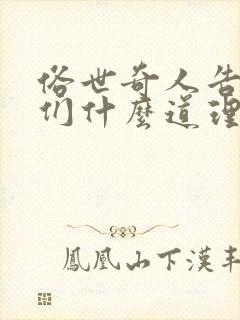 俗世奇人告
们什麼道理
鳳凰山下漢丰